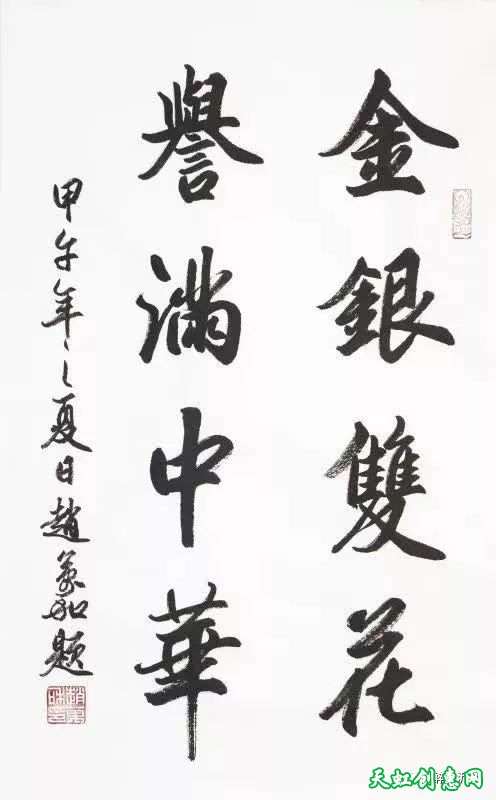 金銀雙花
譽滿中華
甲午年之夏日趙題
天虹创意网